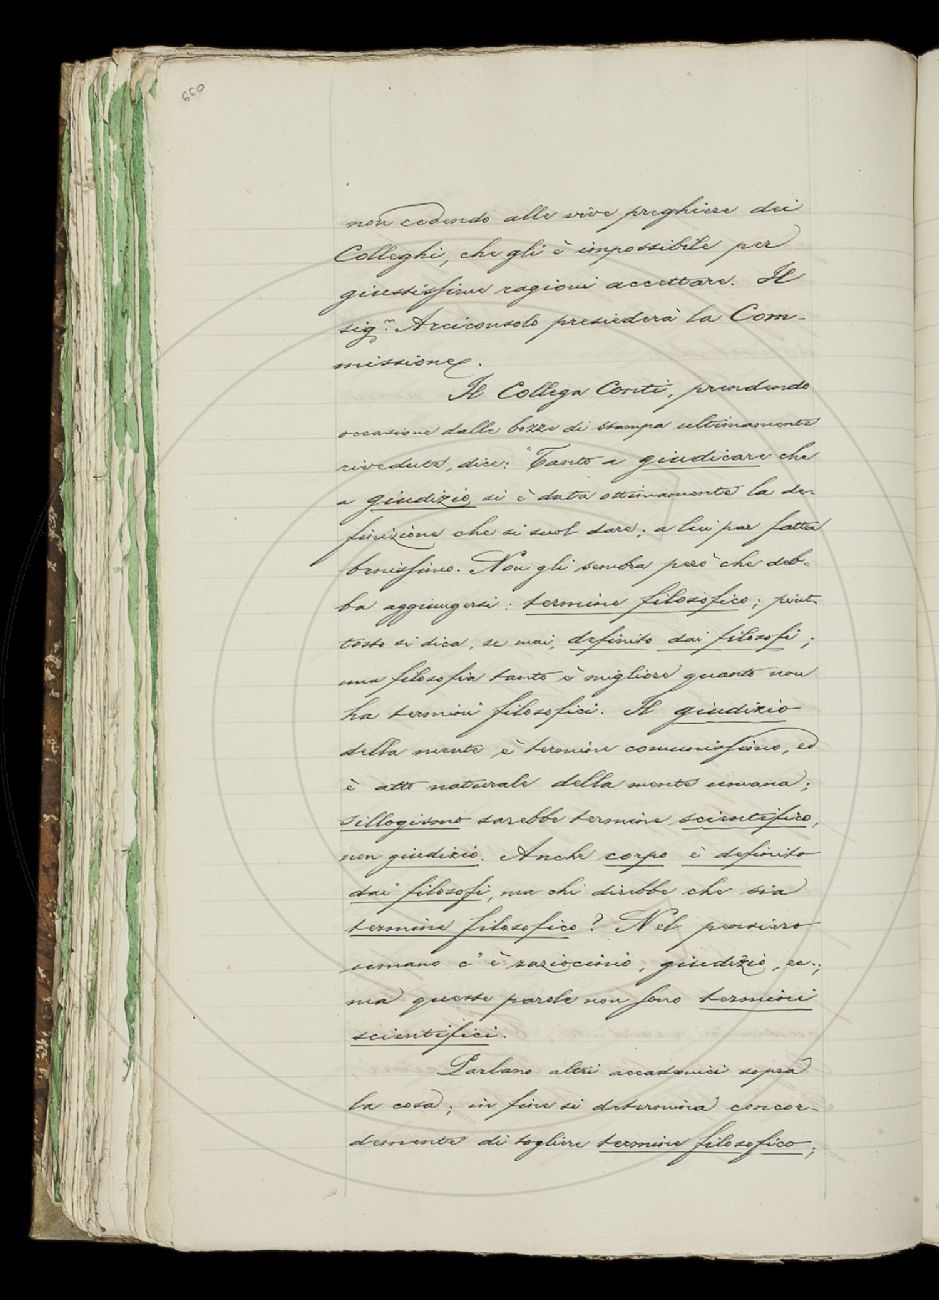 660
non cedendo alle vive preghiere dei
Colleghi, che gli è impossibile per
giustissime ragioni accettare. Il
sig.r Arciconsolo presiederà la Com-
missione.
Il Collega Conti, prendendo
occasione dalle bozze di stampa ultimamente
rivedute, dice: "Tanto a giudicare che
a giudizio, si è data ottimamente la de-
finizione che si suol dare; a lui par fatta
benissimo. Non gli sembra però che deb-
ba aggiungersi: termine filosofico; piut-
tosto si dica, se mai, definito dai filosofi;
una filosofia tanto è migliore quanto non
ha termini filosofici. Il giudizio
della mente è termine comunissimo, ed
è atto naturale della mente umana;
sillogismo sarebbe termine scientifico,
non giudizio. Anche corpo è definito
dai filosofi, ma chi direbbe che sia
termine filosofico? Nel pensiero
umano c'è raziocinio, giudizio, ec.;
ma queste parole non sono termini
scientifici.
Parlano altri accademici sopra
la cosa; in fine si determina concor-
demente di togliere termine filosofico;